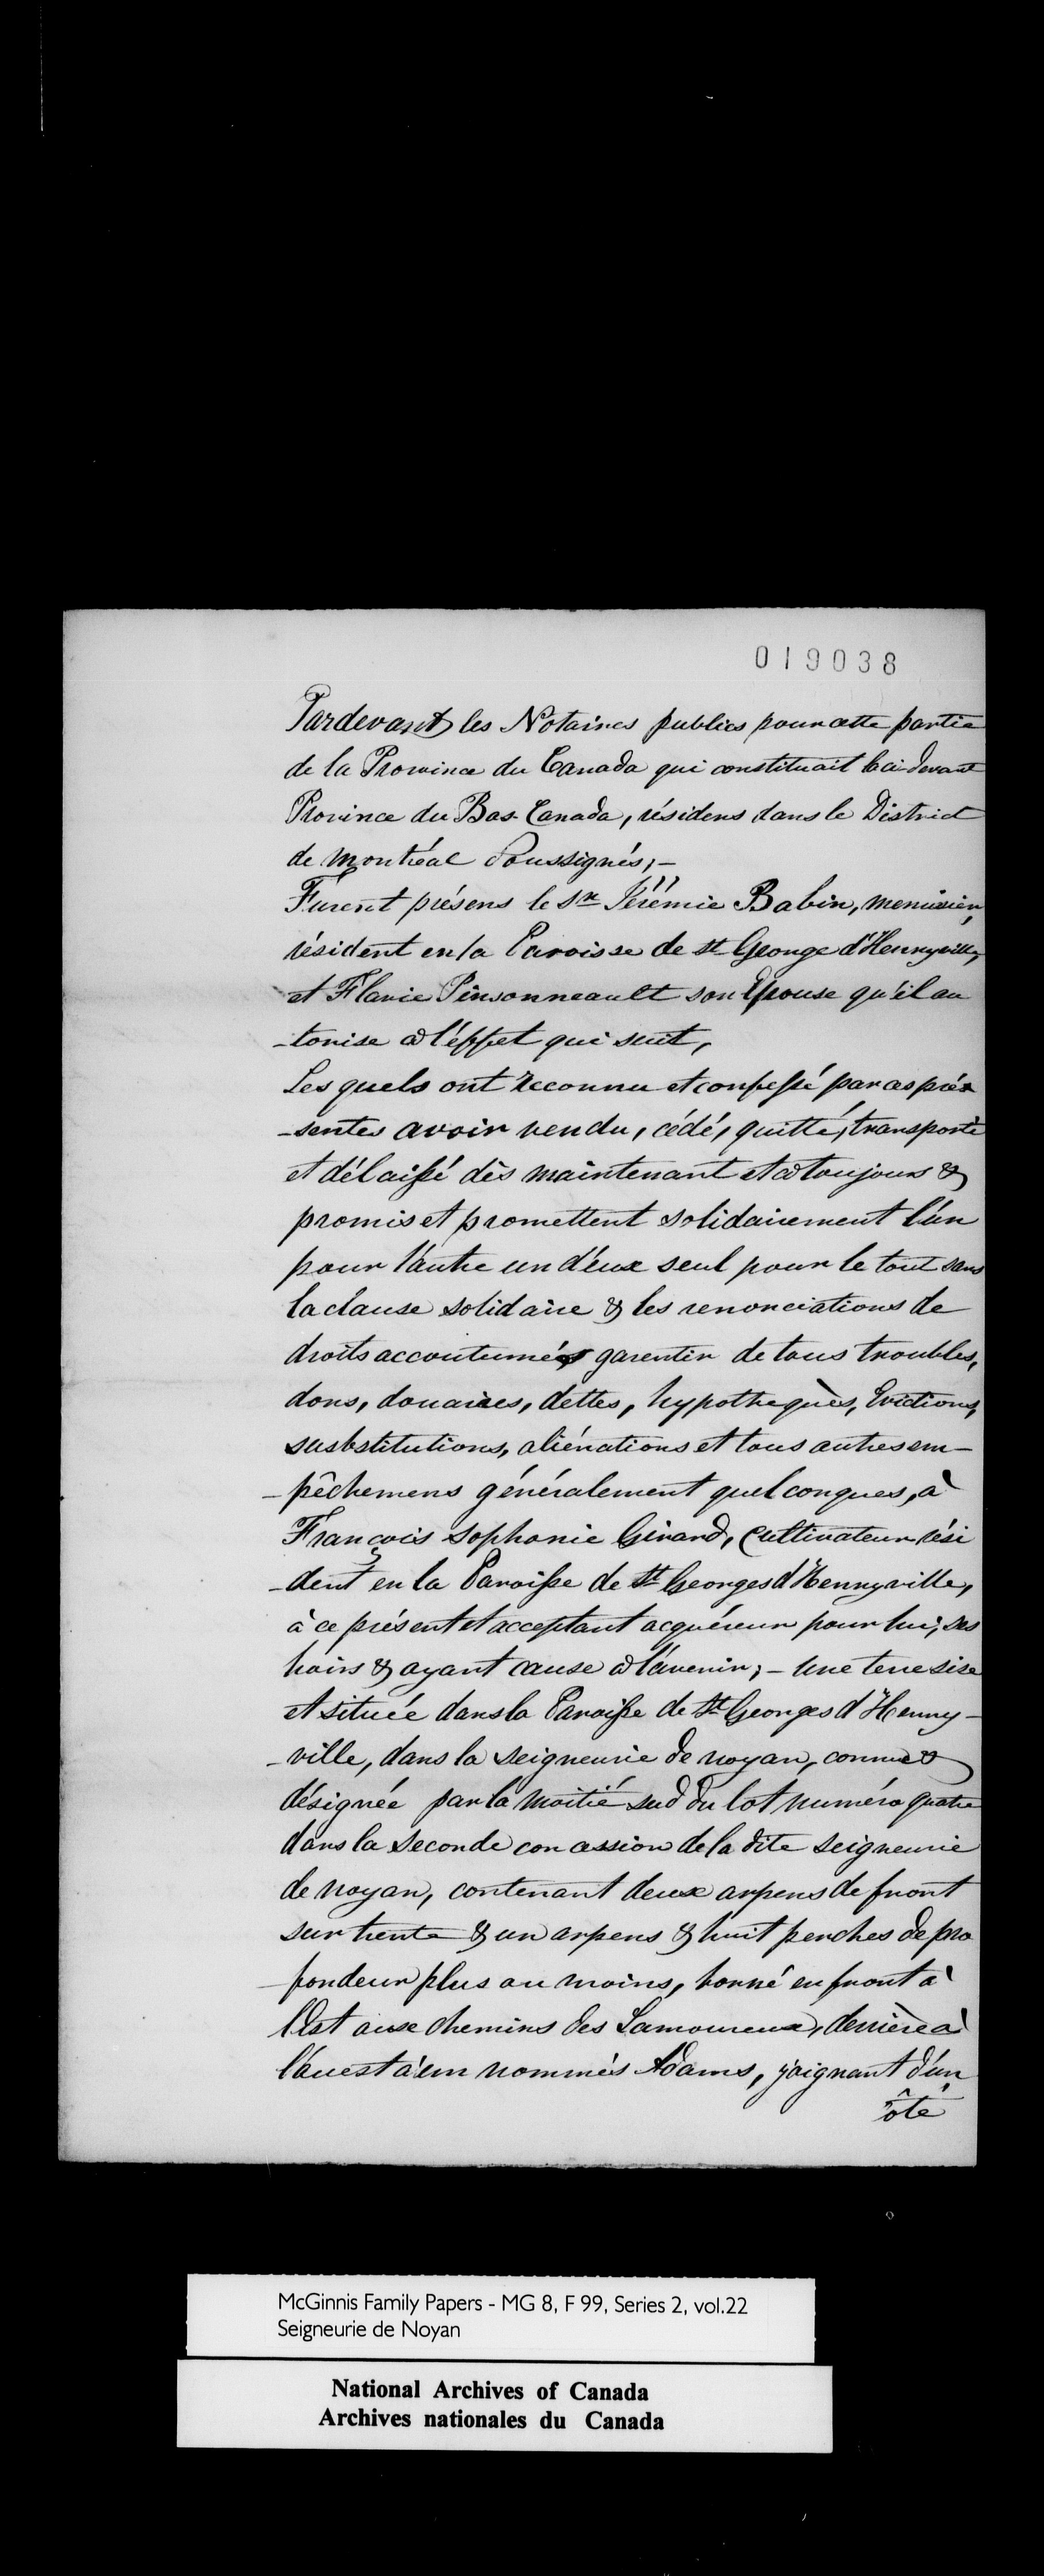 019038
Pardevant les Notaires publics pour cette partie
de la Province du Canada qui constituait la ci-devant
Province du Bas-Canada, résidens dans le District
de Montréal Soussignés,-
Furent présens le Sr. Jérémie Babin, menuisier,
résident en la Paroisse de St George d'Henryville,
et Flavie Pinsonneault son Epouse qu'il au
-torise à l'éffet qui suit,
Les quels ont reconnu et confessé par ces pré
-sentes avoir vendu, cédé, quitté, transporté
et délaissé dès maintenant et à toujours &
promis et promettent solidairement l'un
pour l'autre un d'eux seul pour le tout sans
la clause solidaire & les renonciations de
droits accoutumés garentir de tous troubles,
dons, douaires, dettes, hypothèques, Evictions,
susbstitutions, aliénations et tous autres em-
-pêchemens généralement quelconques, à
François Sophonie Girard, Cultivateur rési
-dent en la Paroisse de St Georges d'Henryville,
à ce présent et acceptant acquéreur pour lui, ses
hoirs & ayant cause à l'avenir; - Une terre sise
et située dans la Paroisse de St Georges d'Henry-
-ville, dans la Seigneurie de Noyan, connue &
désignée par la moitié sud du lot numéro quatre
dans la Seconde concession de la dite Seigneurie
de Noyan, contenant deux arpens de front
sur trente & un arpens & huit perches de pro
-fondeur plus ou moins, borné en front à
l'Est aux chemins des Lamoureux, derrière à
l'ouest à un nommés Adams, joignant d'un
côté
McGinnis Family Papers - MG 8, F 99, Series 2, vol.22
Seigneurie de Noyan
National Archives of Canada
Archives nationales du Canada